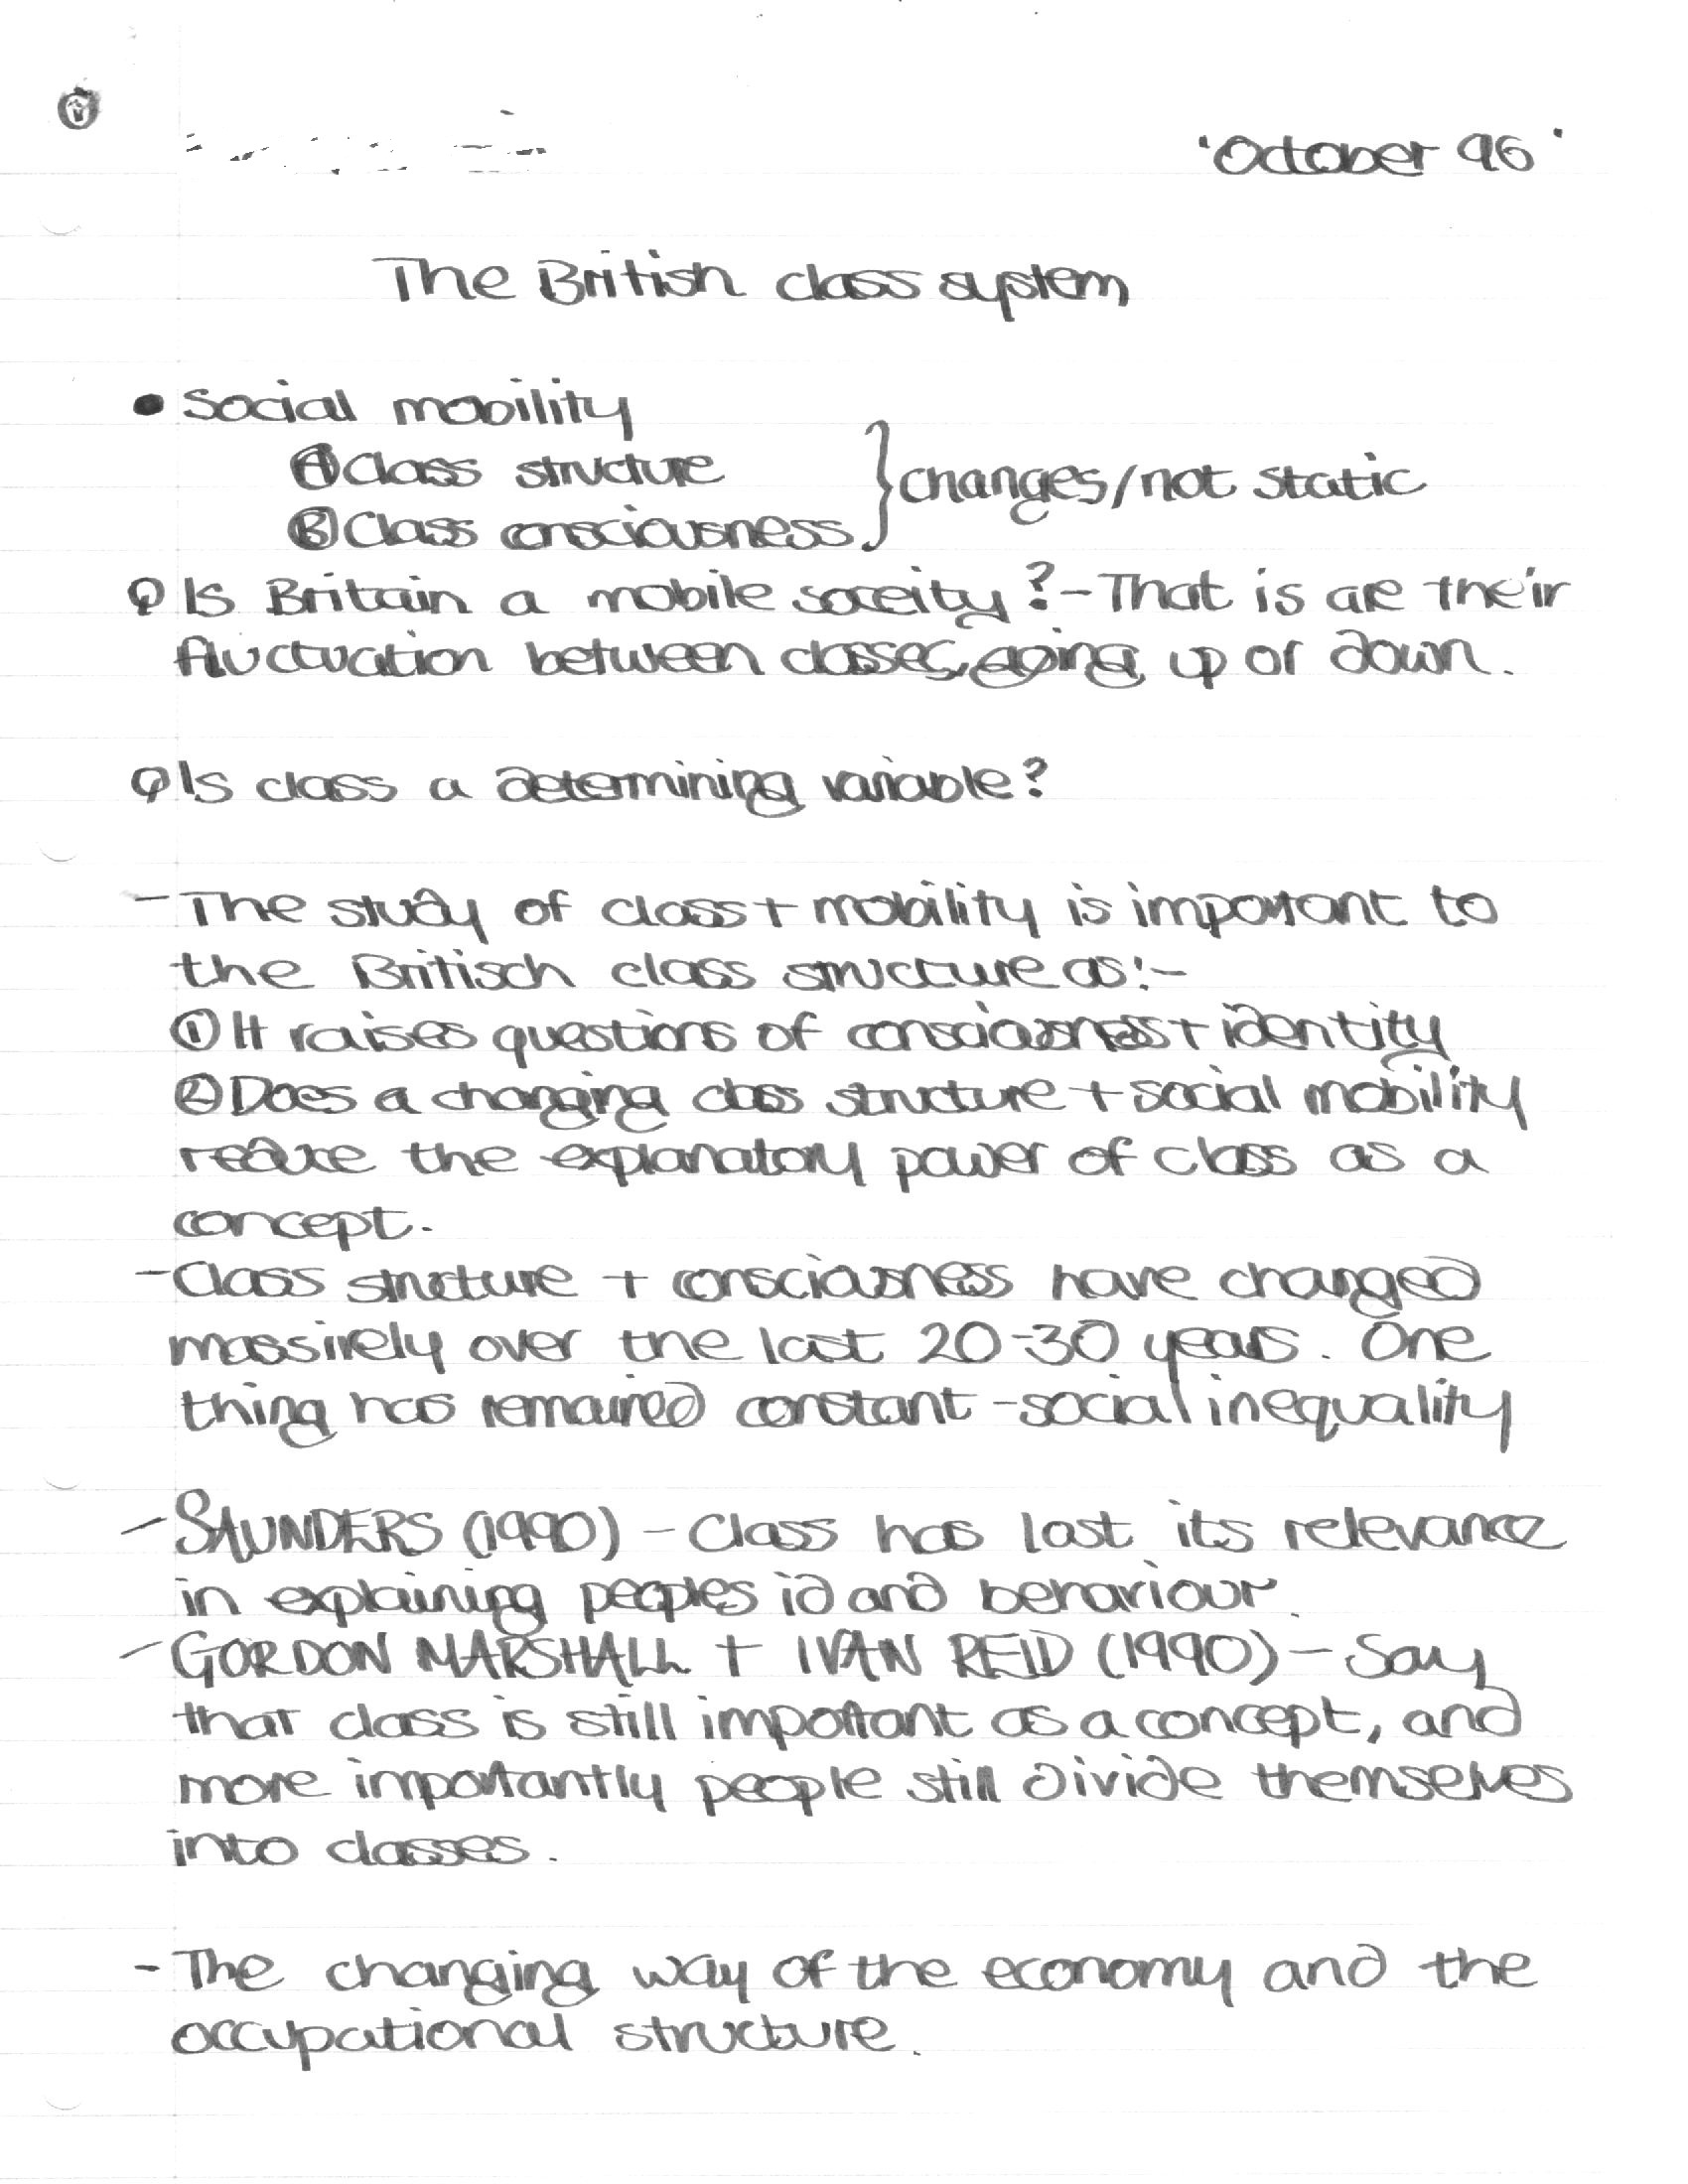 'October 96'
The British class system
• Social mobility
Ⓐ Class structure
Ⓑ Class consciousness } changes/not static
Q Is Britain a mobile soceity? - That is are their
fluctuation between classes, going up or down.
Q Is class a determining variable?
- The study of class + mobility is important to
the Britisch class structure as:-
① It raises questions of consciousness + identity
② Does a changing class structure + social mobility
reduce the explanatory power of class as a
concept.
- Class structure + consciousness have changed
massively over the last 20-30 years. One
thing has remained constant - social inequality
- SAUNDERS (1990) - Class has lost its relevance
in explaining peoples id and behaviour.
- GORDON MARSHALL + IVAN REID (1990) - Say
that class is still important as a concept, and
more importantly people still divide themselves
into classes.
- The changing way of the economy and the
occupational structure.